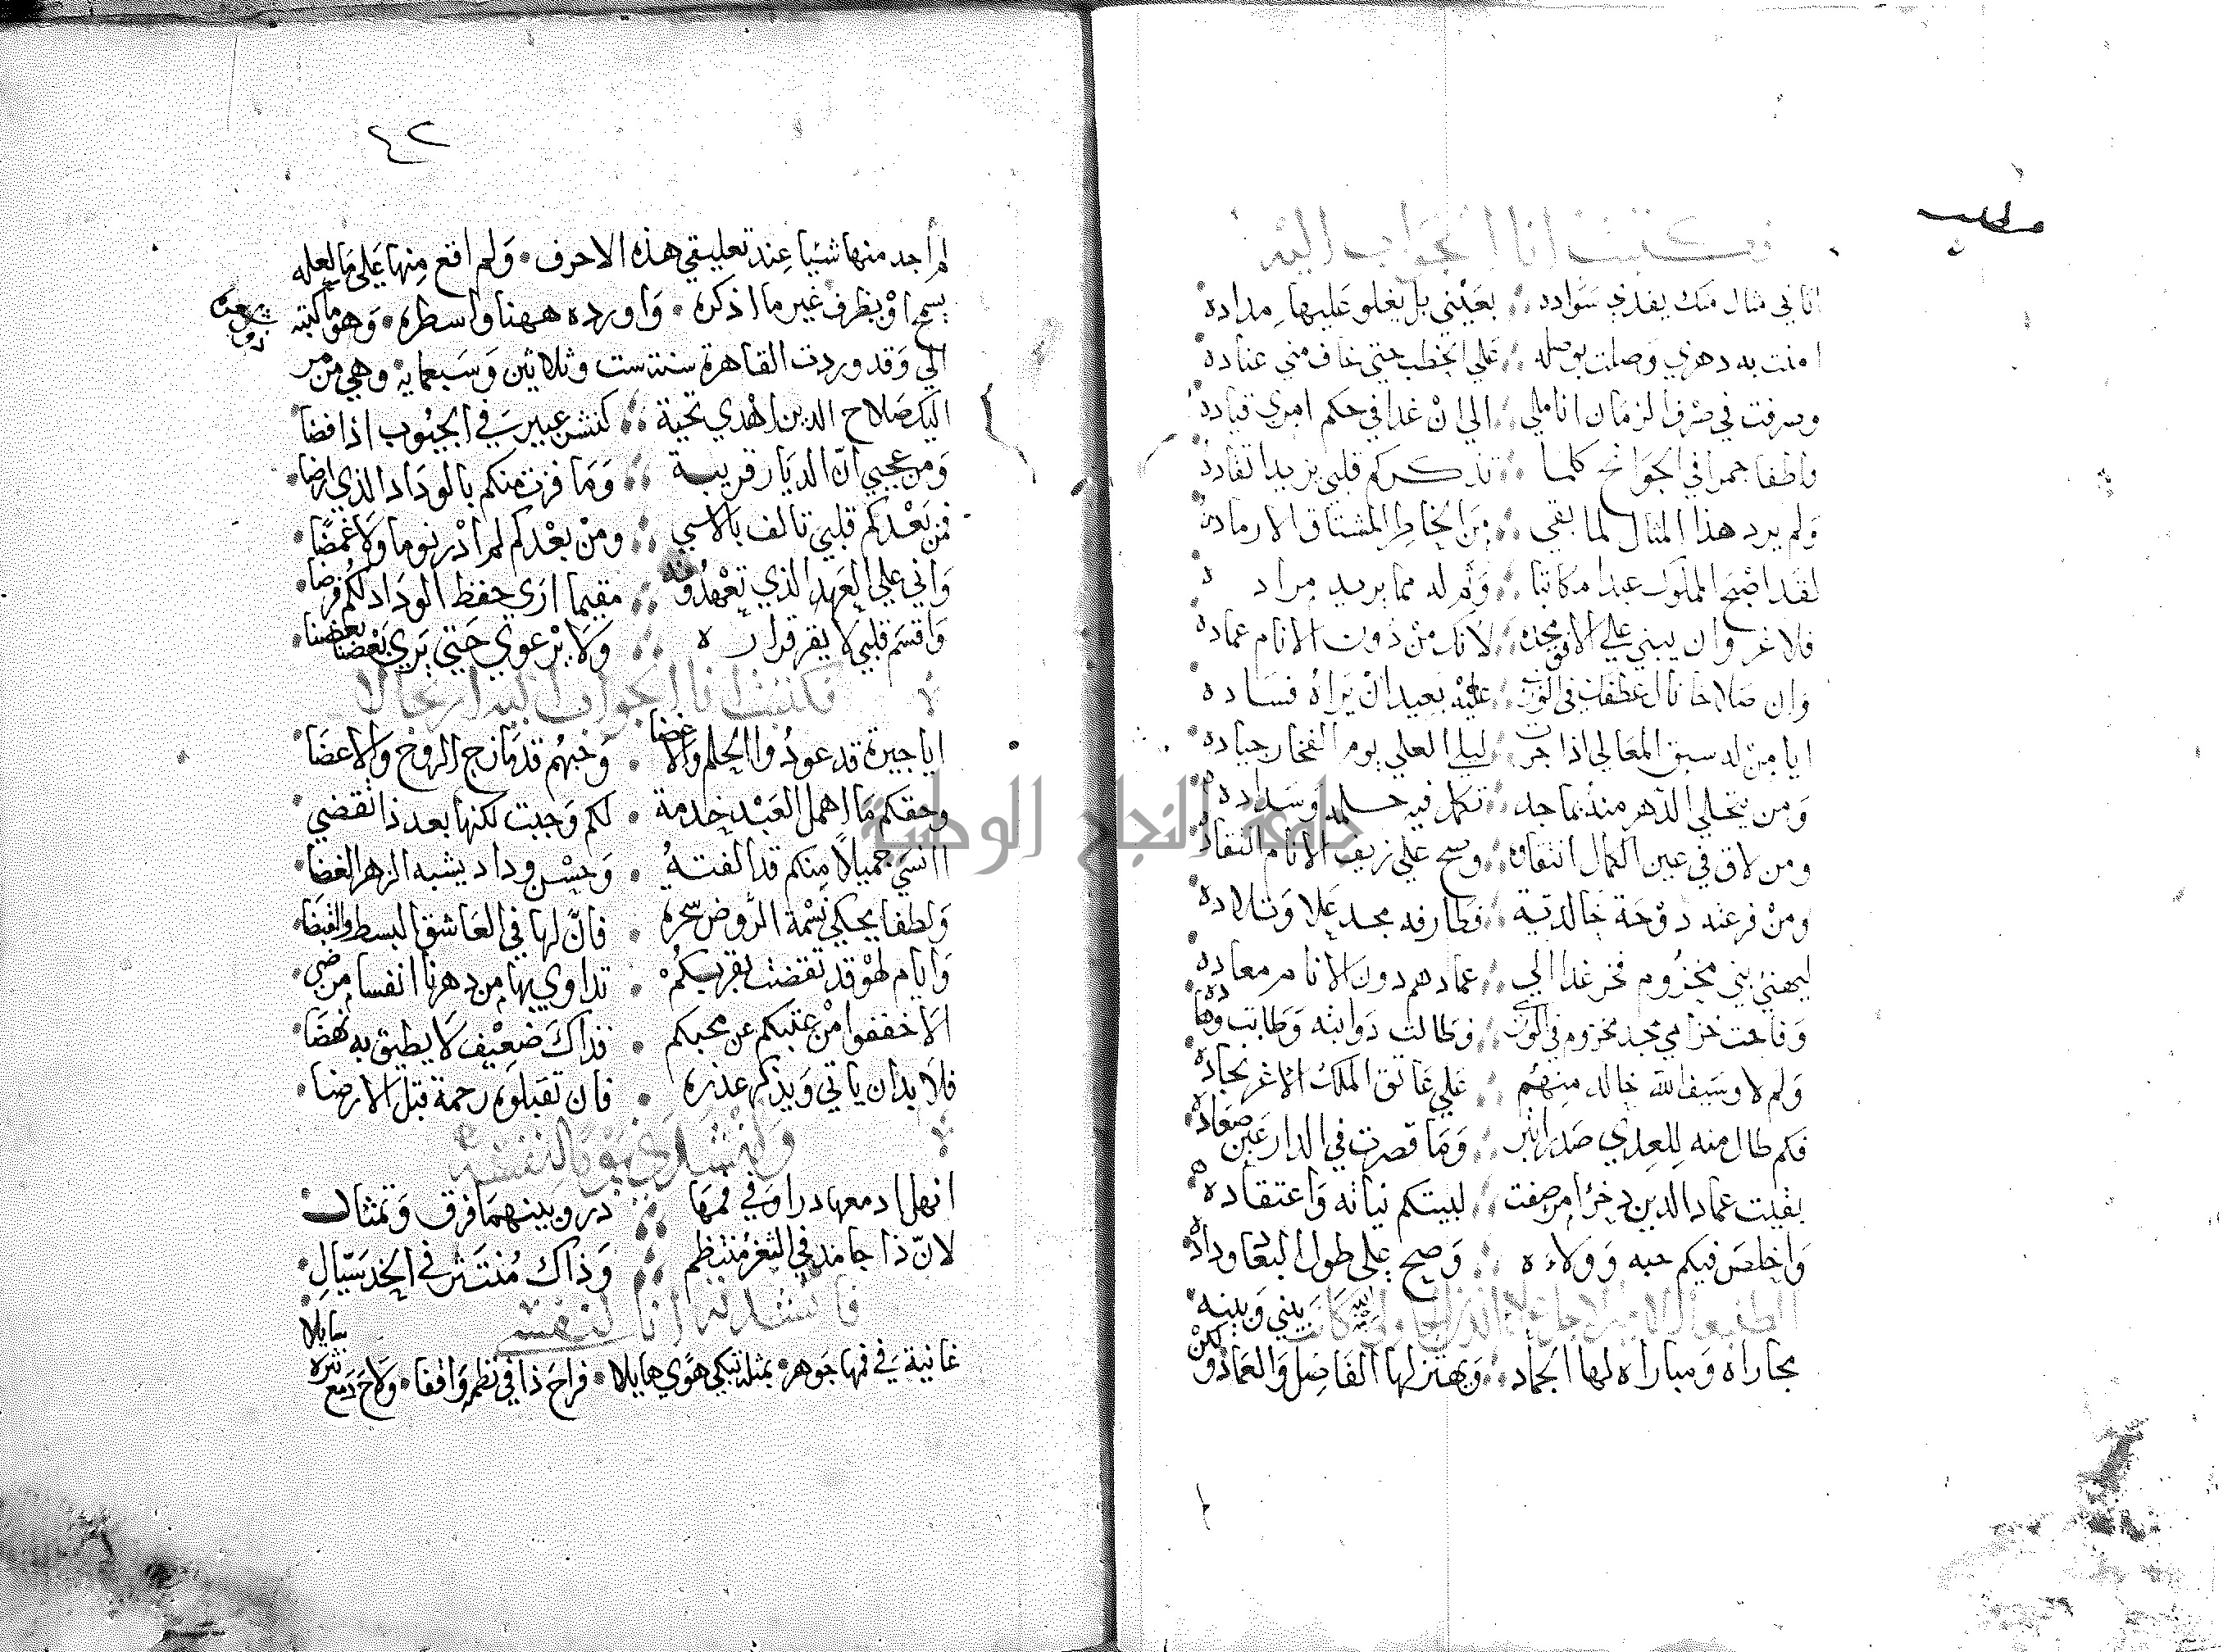 فكتبت انا الجواب اليه
اتاني مثال منك يفدي سواده بعيني بل يغلو عليها مداده
امنت به دهري وصلت بوصله علي الخطب حتي خاف مني عناده
وصرفت في صرف الزمان اناملي الي ان غدا في حكم امري قياده
واطفا جمرا في الجوانح كلما تذكركم قلبي يزيد اتقاده
ولم يرد هذا المثال لما بقي من الخاطر المشتاق الا رماده
لقد اصبح المملوك عبدا مكاتبا وتم له مما يريد مراده
فلا غرو ان يبني علي الافق مجده لانك من دون الانام عماده
وان صلاحا نال عطفك في الوري عليه بعيد ان يراه فساده
ايا من له سبق المعالي اذا جرت ليل العلي يوم الفخار جياده
ومن يتحلي الدهر منه بماجد تكمل فيه حلمه وسداده
ومن لاق في عين الكمال انتقاوه وصح علي زيف الانام انتقاده
ومن فرعته دوحة خالدية فطارفه مجد علا وتلاده
ليهني بني مخزوم فخر غدا الي عمادهم دون الانام معاده
وفاحت خزامي مجد مخزوم في الوري فطالت دوابته وطابت وهاده
ولم لا وسيف الله خالد منهم علي عاتق الملك الاغر نجاده
فكم طال منه للعدي صدر اثر وما قصرت في الدارعين صعاده
بقيت عماد الدين ذخرا مرصفت لبيتكم نياته واعتقاده
واخلص فيكم حبه وولاءه وصح علي طول البعاد وداده
بيني وبينه
مجاراه ومباراه لها الجماد ويهتز لها الفاضل والعماد لكن
٤٢
لم اجد منها شيبا عند تعليقي هذه الاحرف ولم اقع منها علي ما لعله
يسمح او يظرف غير ما اذكره واورده ههنا واسطره وهو ما كتبه
الي وقد وردت القاهرة سنة ست وثلاثين وسبعماية وهي من مر
اليك صلاح الدين اهدي تحية كنشر عبير في الجيوب اذا فضا
ومن عجبي ان الديار قريبة وما فزت منكم بالوداد الذي ارضا
فمن بعدكم قلبي تالف بالاسي ومن بعدكم لم ادر نوما ولا غمضا
واني علي العهد الذي تعهدونه مقيما اري حفظ الوداد لكم فرضا
واقسم قلبي لا يقر قراره ولا يرعوي حتي يري بعضنا بعضا
فكتبت انا الجواب اليه ارتجالا
ايا جيرة قد عودوا الحلم والاغضا وحبهم قد مازج الروح والاعضا
وحقكم ما اهمل العبد خدمة لكم وجبت لكنها بعد ذا تقضي
اانسي جميلا منكم قد الفته وحسن وداد يشبه الزهر الغضا
ولطفا يحكي نسمة الروض سحرة فان لها في العاشق البسط والقبضا
وايام لهو قد تقضت بقربكم تداوي بها من دهرنا انفسا مرضي
الا خففوا من عتبكم عن محبكم فذاك ضعيف لا يطيق به نهضا
فلا بد ان ياتي ويذكر عذره فان تقبلوه رحمة قبل الارضا
وانشدني هو لنفسه
انهل ادمعها درا وفي فمها در وبينهما فرق وتمثال
لان ذا جامد في الثغر منتظم وذاك منتثر في الخد سيال
فانشدته انا لنفسي
غانية في فمها جوهر بمثله تبكي هوي هايلا فراح ذا في نظمه واقفا ولاح دمع نثره سايلا
جامعة النجاح الوطنية